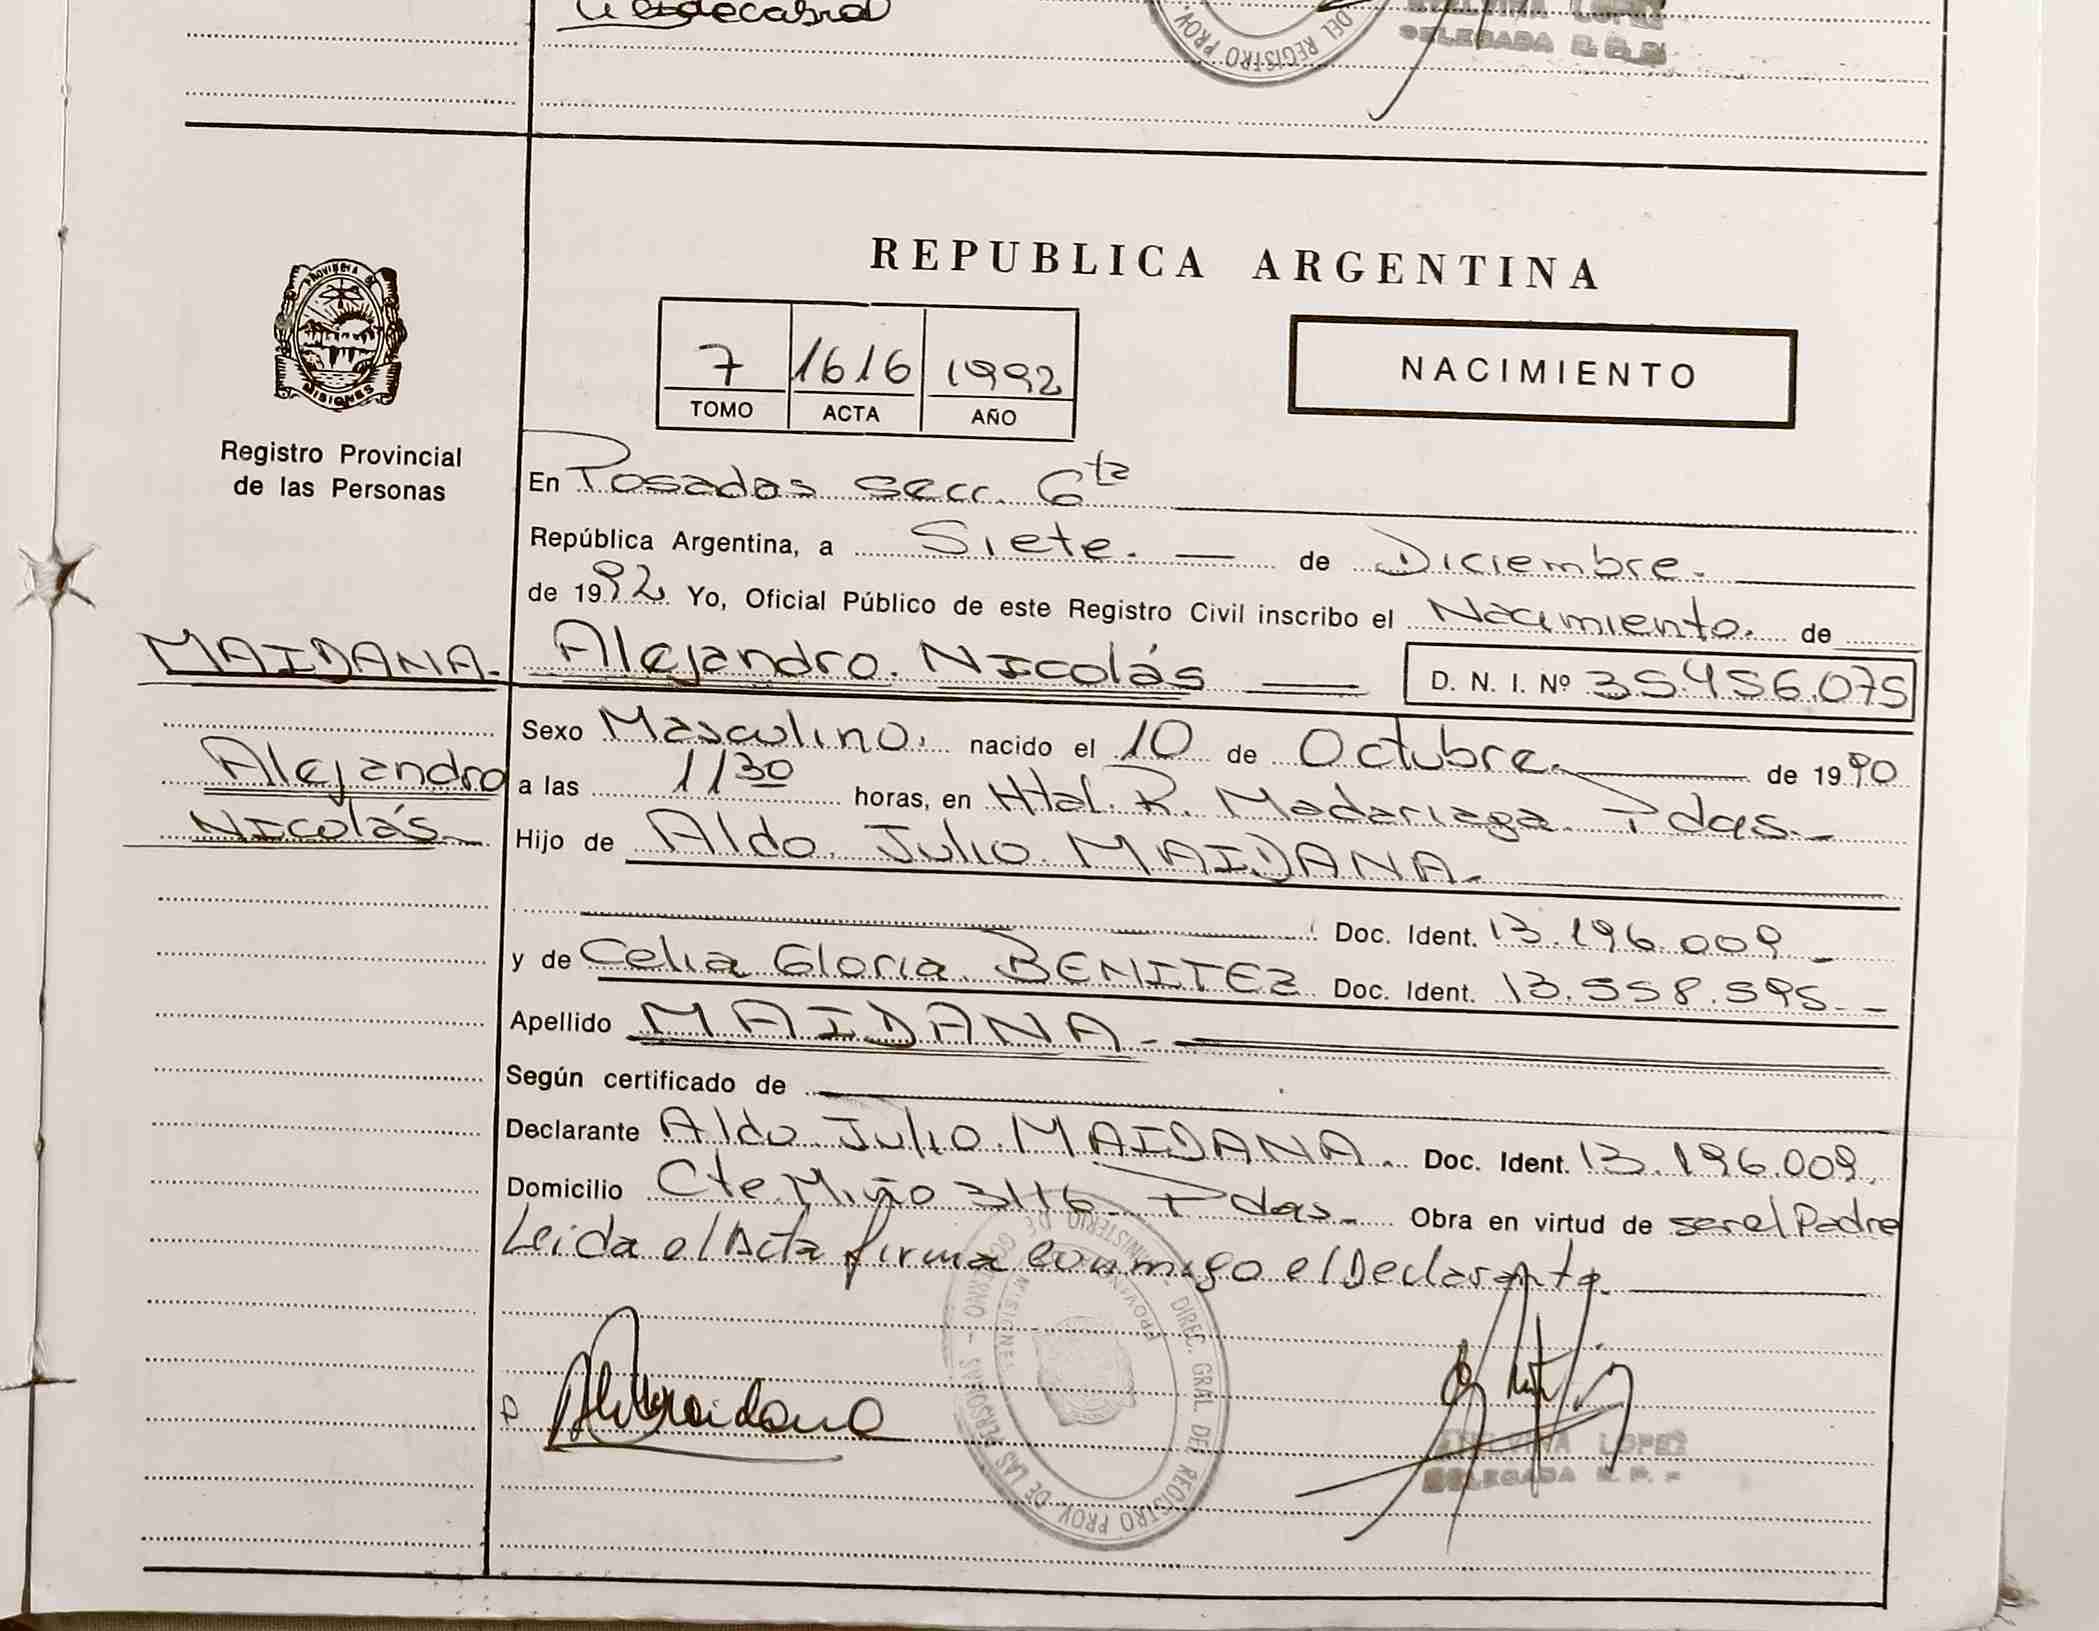 DEL REGISTRO PROV.
LOPEZ
DELEGADA R. P. P.
PROVINCIA DE
MISIONES
Registro Provincial
de las Personas
REPUBLICA ARGENTINA
7 1616 1992
TOMO ACTA AÑO
NACIMIENTO
En Posadas secc. 6ta
República Argentina, a Siete. — de Diciembre.
de 1992 Yo, Oficial Público de este Registro Civil inscribo el Nacimiento. de
MAIDANA. Alejandro. Nicolás — D. N. I. Nº 35.456.075
Alejandro
Nicolás
Sexo Masculino. nacido el 10 de Octubre. de 1990
a las 11 30 horas, en Htal. R. Madariaga. Pdas.
Hijo de Aldo. Julio. MAIDANA.
Doc. Ident. 13.196.009
y de Celia Gloria BENITEZ Doc. Ident. 13.558.595
Apellido MAIDANA.
Según certificado de
Declarante Aldo. Julio. MAIDANA. Doc. Ident. 13.196.009.
Domicilio Cte. Miño 3116 Pdas. Obra en virtud de ser el Padre
Leida el Acta firma conmigo el Declarante.
MINISTERIO DE GOBIERNO - DIREC. GRAL. DEL REGISTRO PROV. DE LAS PERSONAS
PROVINCIA
MISIONES
LOPEZ
DELEGADA R. P.